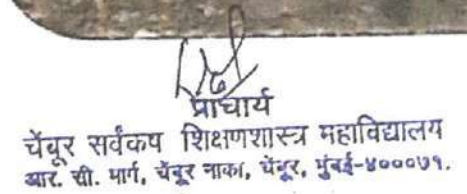 प्राचार्य
चेंबूर सर्वंकष शिक्षणशास्त्र महाविद्यालय
आर. सी. मार्ग, चेंबूर नाका, चेंबूर, मुंबई-४०००७१.